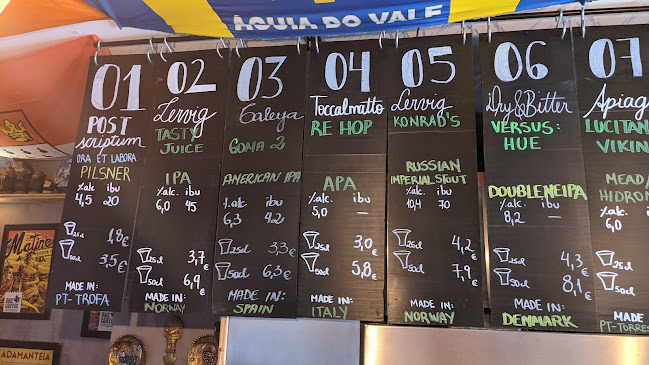 ÁGUIA DO VALE
01
POST
scriptum
ORA ET LABORA
PILSNER
%alc ibu
4,5 20
1,8€
3,5€
MADE IN:
PT-TROFA
02
Lervig
TASTY
JUICE
IPA
%alc. ibu
6,0 45
25cl 3,7€
50cl 6,9€
MADE IN:
NORWAY
03
GOMA 2
AMERICAN IPA
%alc. ibu
6,3 42
25cl 3,3€
50cl 6,3€
MADE IN:
SPAIN
04
Toccalmatto
RE HOP
APA
%alc. ibu
5,0 —
25cl 3,0€
50cl 5,8€
MADE IN:
ITALY
05
Lervig
KONRAD'S
RUSSIAN
IMPERIAL STOUT
%alc ibu
10,4 70
25cl 4,2€
50cl 7,9€
MADE IN:
NORWAY
06
Dry&Bitter
VERSUS:
HUE
DOUBLE NEIPA
%alc. ibu
8,2 —
25cl 4,3€
50cl 8,1€
MADE IN:
DENMARK
07
Apiag
LUCITAN
VIKIN
MEAD/
HIDROM
%alc. ibu
6,0 —
25cl
50cl
MADE IN:
PT-TORRES
Matine
ADAMANTEIA